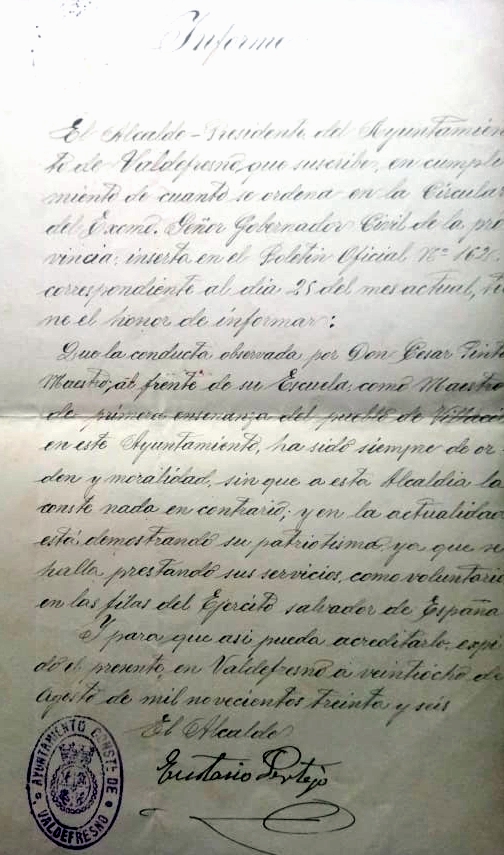 Informe
El Alcalde-Presidente del Ayuntamien
to de Valdefresno, que suscribe, en cumpli
miento de cuanto se ordena en la Circula
del Excmo. Señor Gobernador Civil de la pro
vincia, inserta en el Boletin Oficial Nº 162
correspondiente al dia 25 del mes actual, tie
ne el honor de informar:
Que la conducta observada por Don Cesar
Maestro, al frente de su Escuela, como Maestro
de primera enseñanza del pueblo de
en este Ayuntamiento, ha sido siempre de or-
den y moralidad, sin que a esta Alcaldia la
conste nada en contrario; y en la actualidad
está demostrando su patriotismo, ya que se
halla prestando sus servicios, como voluntario
en las filas del Ejercito salvador de España
Y para que asi pueda acreditarlo, expi
do el presente, en Valdefresno a veintiocho de
Agosto de mil novecientos treinta y seis
El Alcalde
Eustasio Pertejo
AYUNTAMIENTO CONST. DE
VALDEFRESNO